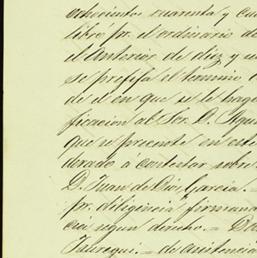 ochocientos cuarenta y cua
libro pr. el ordinario de
el Anterior de diez y
se prefija el termino
de el en que se le haga
ficacion al Sor. D.
que se presente en este
Jurado á contestar sobre
D. Juan de Dios Garcia. =
pr. diligencia firmaron
segun derecho. =
Jauregui. = de asistencia